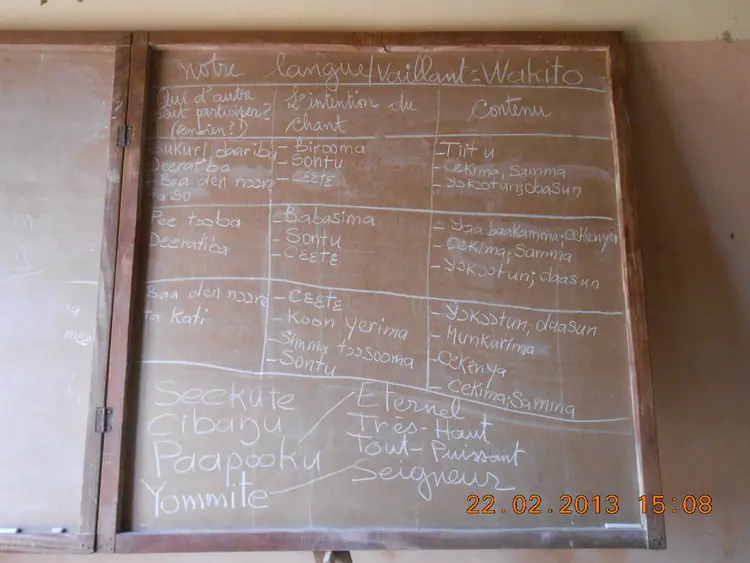 notre langue/Vaillant=Wakito
Qui d'autre peut participer? (combien?!)
L'intention du chant
Contenu
sukuru, daaribu
Deeratiba
- Baa den noore
ta so
- Birooma
- Sontu
- CEETE
- Tiitu
- Cekima, samma
- Yɔkɔɔtun; daasun
Pee tɔɔba
Deeratiba
- Babasima
- Sontu
- CEETE
- Yaa baakamma; cekenya
- Cekima; Samma
- Yɔkɔɔtun; daasun
Baa den nɔɔre
ta kati
- CEETƐ
- Koon yerima
- Simma tɔɔsooma
- Sontu
- Yɔkɔɔtun; daasun
- Munkurima
- Cekenya
- Cekima; Samma
Seekute
Cibaŋu
Paapɔɔku
Yommite
Eternel
Très-Haut
Tout-Puissant
Seigneur
22.02.2013 15:08